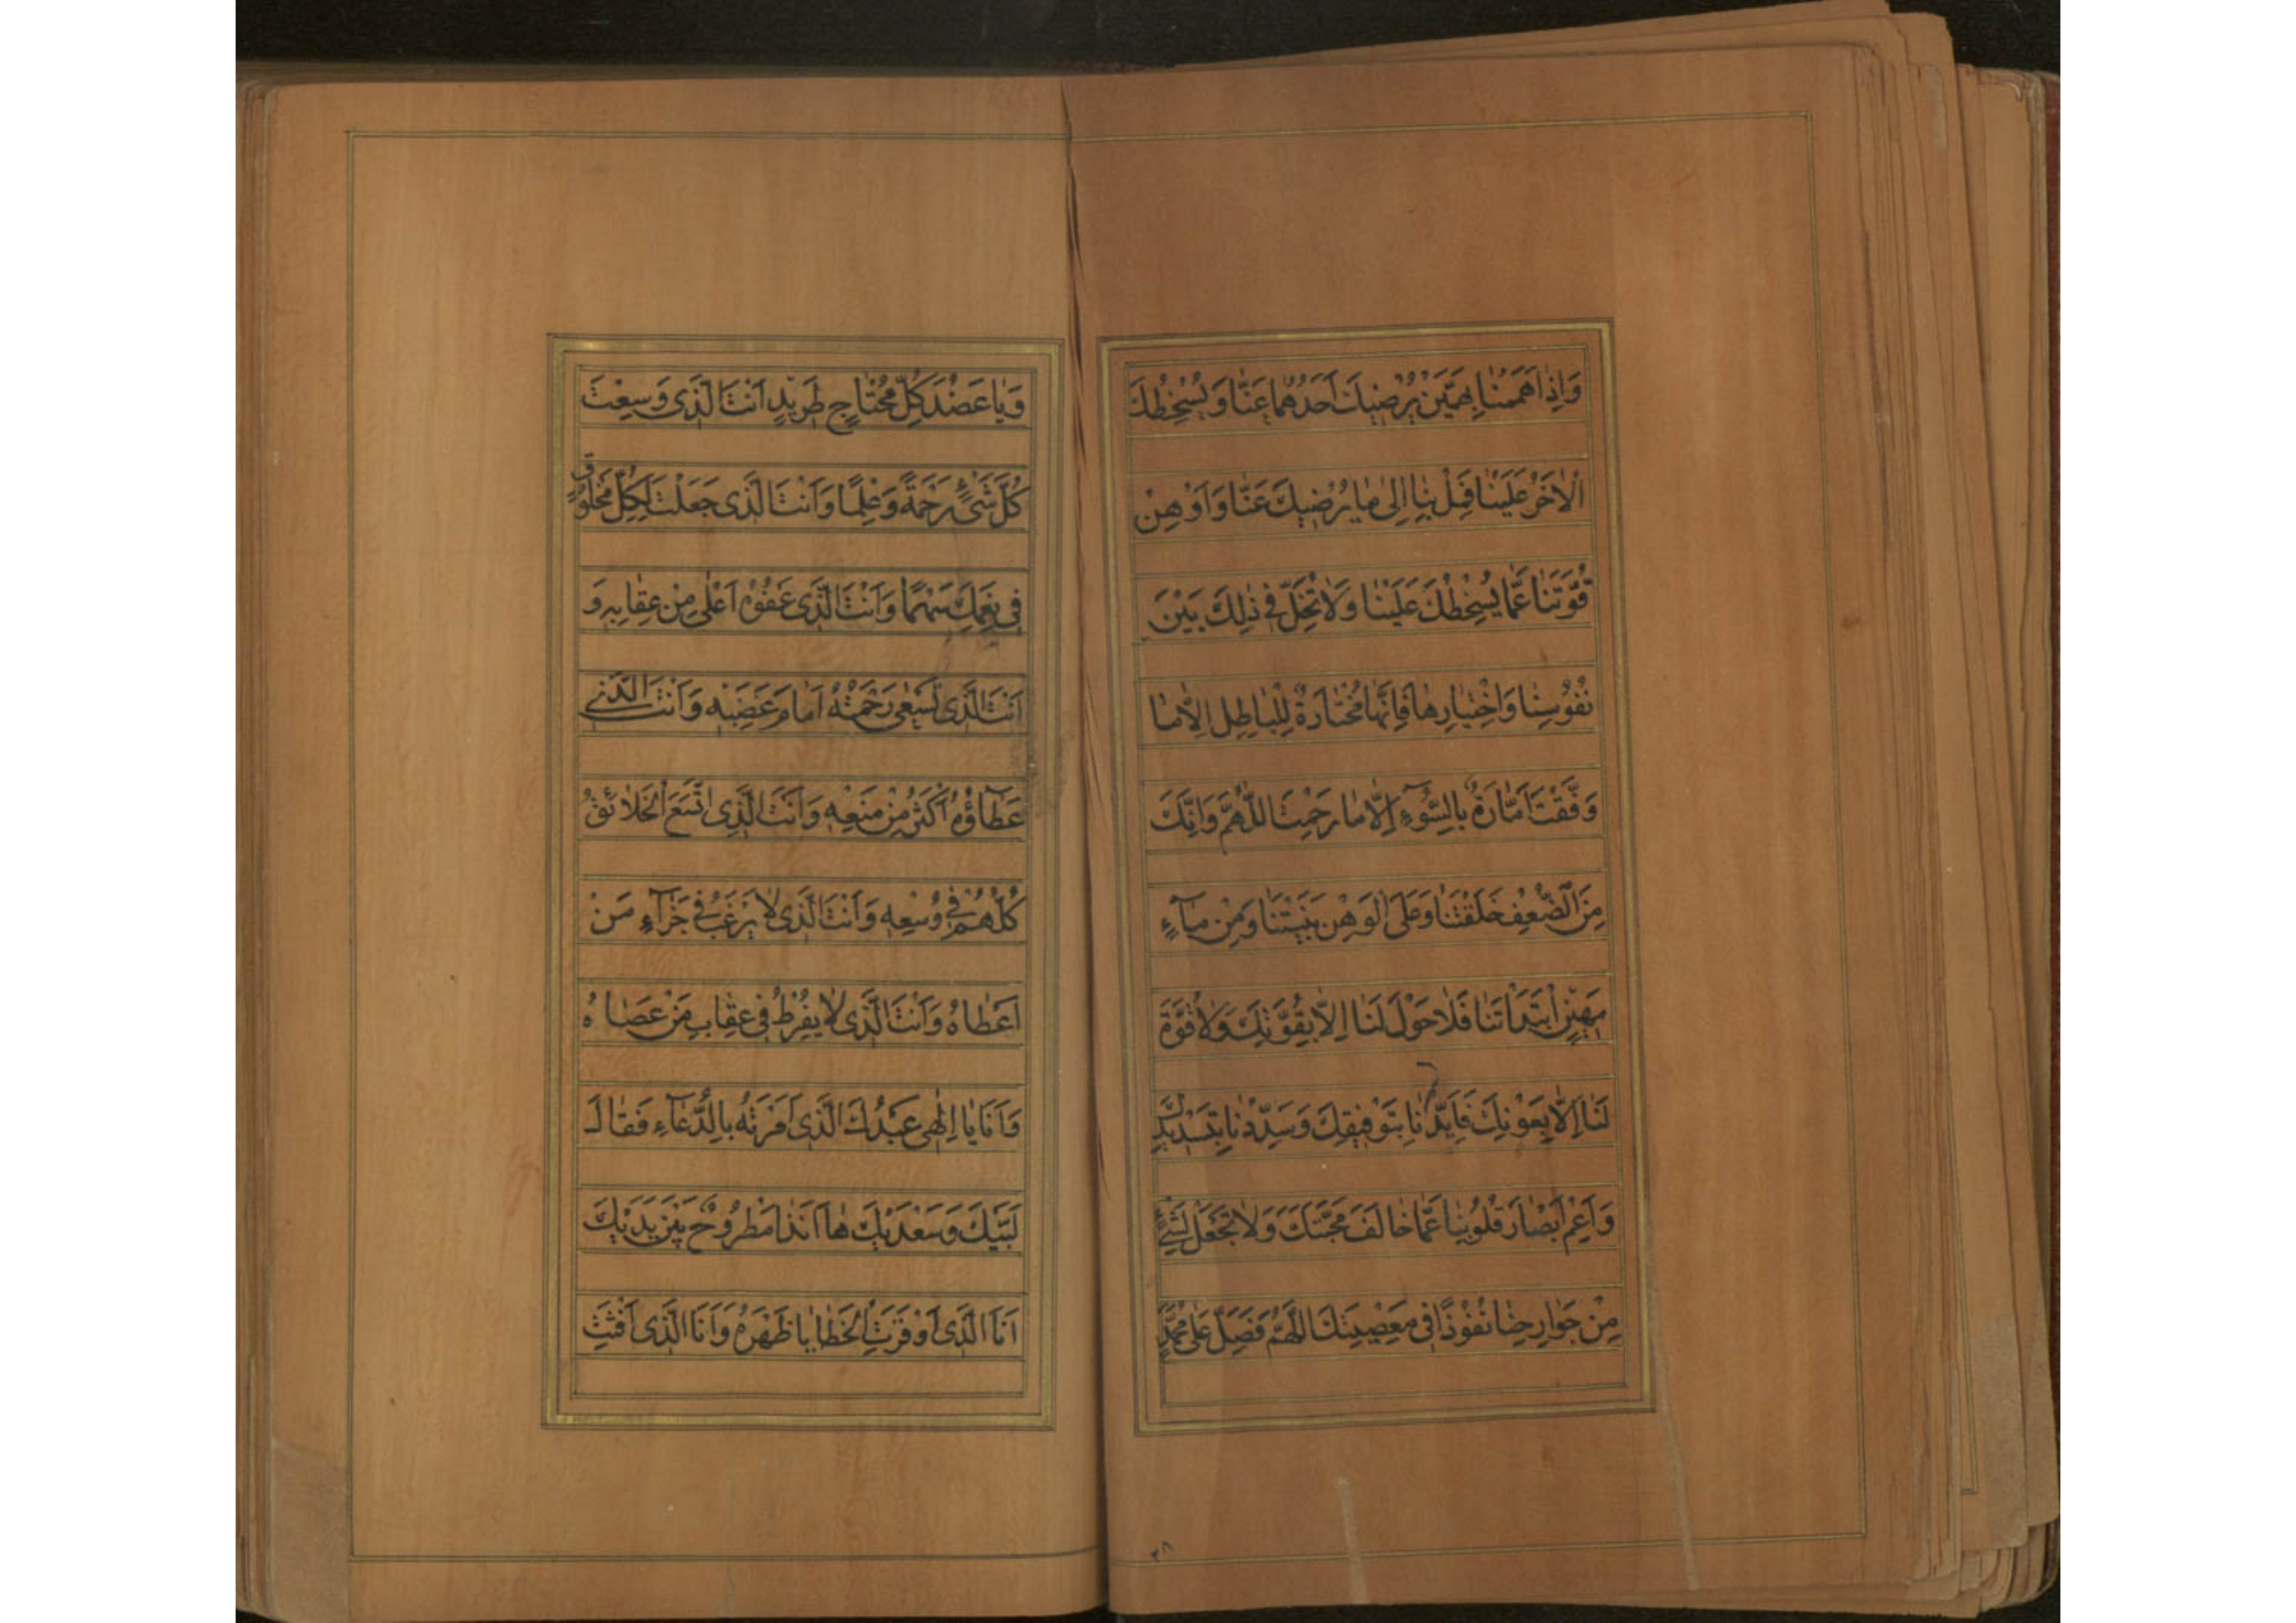 وَاِذٰا هَمَمْنٰا بِهَمَّيْنِ يُرْضِيكَ اَحَدُهُمٰا عَنّٰا وَ يُسْخِطُكَ
الْاٰخَرُ عَلَيْنٰا فَمِلْ بِنٰا اِلىٰ مٰا يُرْضِيكَ عَنّٰا وَ اَوْهِنْ
قُوَّتَنٰا عَمّٰا يُسْخِطُكَ عَلَيْنٰا وَلاٰ تُخَلِّ فِي ذٰلِكَ بَيْنَ
نُفُوسِنٰا وَ اخْتِيٰارِهٰا فَاِنَّهٰا مُخْتٰارَةٌ لِلْبٰاطِلِ اِلاّٰ مٰا
وَفَّقْتَ اَمّٰارَةٌ بِالسُّوۤءِ اِلاّٰ مٰا رَحِمْتَ اللّٰهُمَّ وَاِنَّكَ
مِنَ الضَّعْفِ خَلَقْتَنٰا وَعَلَى الْوَهْنِ بَنَيْتَنٰا وَمِنْ مٰاۤءٍ
مَهِينٍ ابْتَدَاْتَنٰا فَلاٰ حَوْلَ لَنٰا اِلاّٰ بِقُوَّتِكَ وَلاٰ قُوَّةَ
لَنٰا اِلاّٰ بِعَوْنِكَ فَاَيِّدْنٰا بِتَوْفِيقِكَ وَسَدِّدْنٰا بِتَسْدِيدِكَ
وَاَعْمِ اَبْصٰارَ قُلُوبِنٰا عَمّٰا خٰالَفَ مَحَبَّتَكَ وَلاٰ تَجْعَلْ لِشَيْءٍ
مِنْ جَوٰارِحِنٰا نُفُوذًا فِي مَعْصِيَتِكَ اللّٰهُمَّ فَصَلِّ عَلىٰ مُحَمَّدٍ
٢٨
وَيٰا عَضُدَ كُلِّ مُحْتٰاجٍ طَرِيدٍ اَنْتَ الَّذِى وَسِعْتَ
كُلَّ شَيْءٍ رَحْمَةً وَعِلْمًا وَاَنْتَ الَّذِى جَعَلْتَ لِكُلِّ مَخْلُوقٍ
فِي نِعَمِكَ سَهْمًا وَاَنْتَ الَّذِى عَفْوُهُ اَعْلىٰ مِنْ عِقٰابِهِ وَ
اَنْتَ الَّذِى تَسْعىٰ رَحْمَتُهُ اَمٰامَ غَضَبِهِ وَاَنْتَ الَّذِي
عَطٰاۤؤُهُ اَكْثَرُ مِنْ مَنْعِهِ وَاَنْتَ الَّذِى اتَّسَعَ الْخَلاٰئِقُ
كُلُّهُمْ فِي وُسْعِهِ وَاَنْتَ الَّذِى لاٰ يَرْغَبُ فِي جَزٰاۤءِ مَنْ
اَعْطٰاهُ وَاَنْتَ الَّذِى لاٰ يُفْرِطُ فِي عِقٰابِ مَنْ عَصٰاهُ
وَاَنَا يٰا اِلٰهِي عَبْدُكَ الَّذِى اَمَرْتَهُ بِالدُّعٰاۤءِ فَقٰالَ
لَبَّيْكَ وَسَعْدَيْكَ هٰا اَنَذٰا مَطْرُوحٌ بَيْنَ يَدَيْكَ
اَنَا الَّذِى اَوْقَرَتِ الْخَطٰايٰا ظَهْرَهُ وَاَنَا الَّذِى اَفْنَتِ